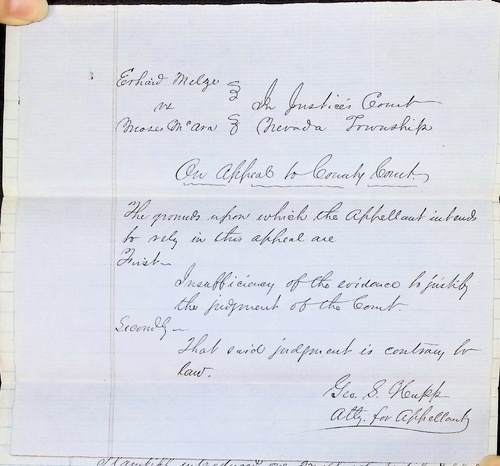 Erhard Melze } In Justice's Court
vs
Moses McAra } Nevada Township
On Appeal to County Court
The grounds upon which the Appellant intends
to rely in this appeal are
First—
Insufficiency of the evidence to justify
the judgment of the Court.
Secondly—
That said judgment is contrary to
law.
Geo. S. Hupp
Atty. for Appellant
Plaintiff introduced